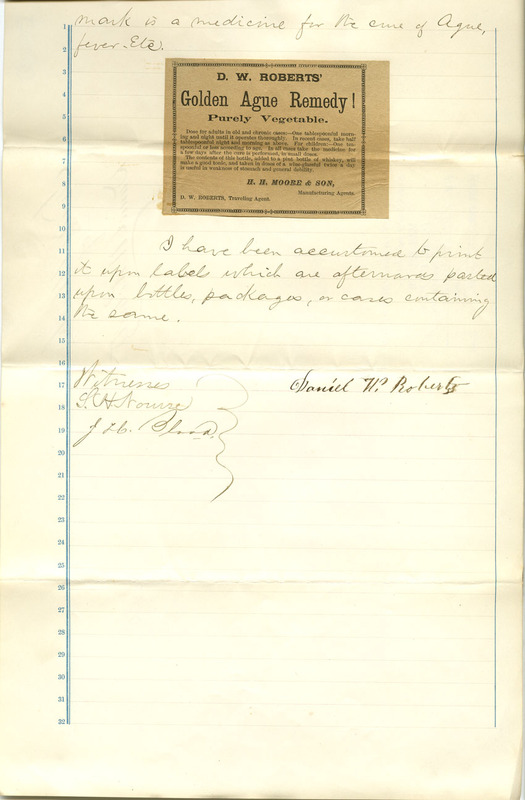 mark is a medicine for the cure of Ague,
fever Etc.
D. W. ROBERTS'
Golden Ague Remedy!
Purely Vegetable.
Dose for adults in old and chronic cases:—One tablespoonful morn-
ing and night until it operates thoroughly. In recent cases, take half
tablespoonful night and morning as above. For children:—One tea-
spoonful or less according to age. In all cases take the medicine for
a few days after the cure is performed, in small doses.
The contents of this bottle, added to a pint bottle of whiskey, will
make a good tonic, and taken in doses of a wine-glassful twice a day
is useful in weakness of stomach and general debility.
H. H. MOORE & SON,
Manufacturing Agents.
D. W. ROBERTS, Traveling Agent.
I have been accustomed to print
it upon labels which are afterwards pasted
upon bottles, packages, or cases containing
the same.
Witnesses
Daniel W. Roberts
S. H. Nourse
1
2
3
4
5
6
7
8
9
10
11
12
13
14
15
16
17
18
19
20
21
22
23
24
25
26
27
28
29
30
31
32